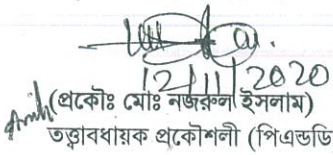 12/11/2020
(প্রকৌঃ মোঃ নজরুল ইসলাম)
তত্ত্বাবধায়ক প্রকৌশলী (পিএন্ডডি